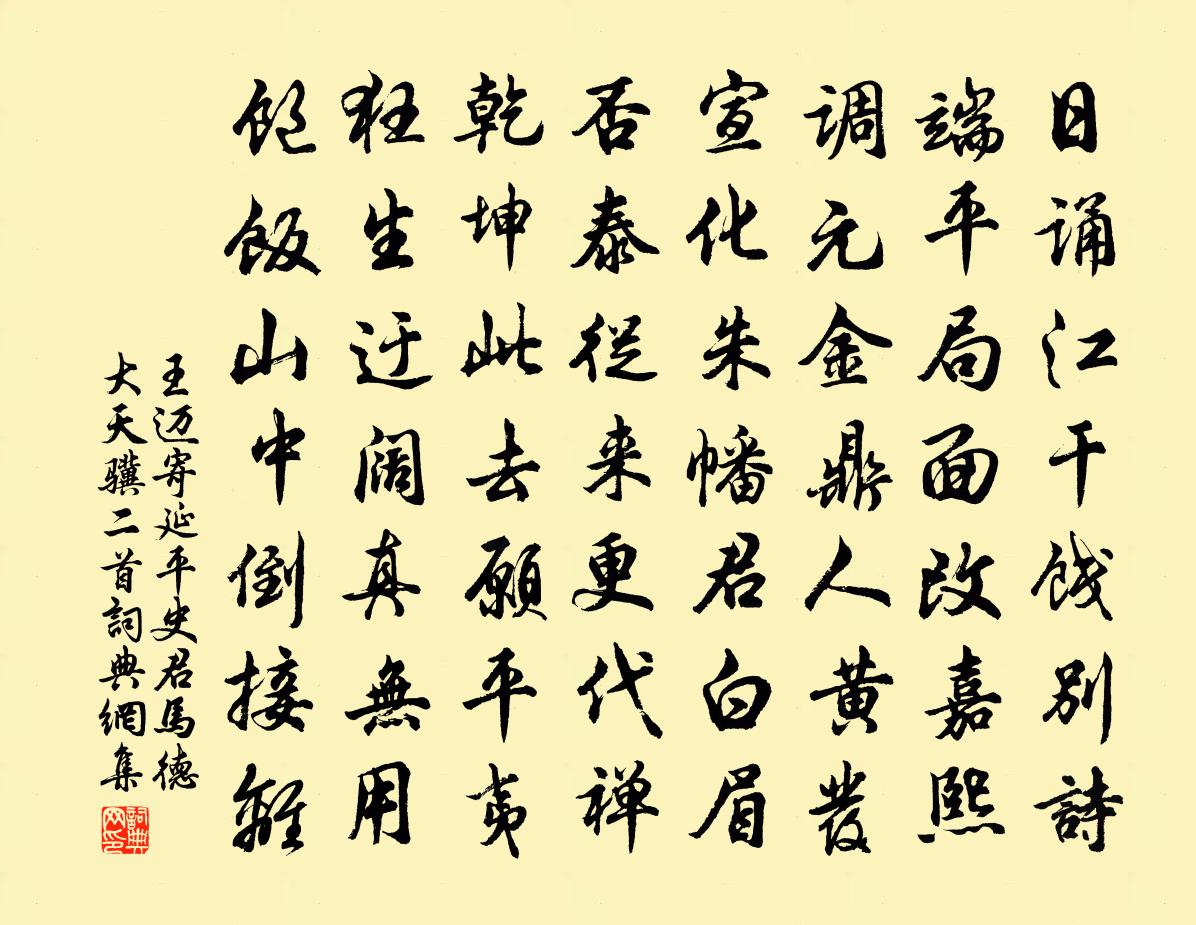 日诵江干饯别詩
端平局面改嘉熙
调元金鼎人黄發
宣化朱幡君白眉
否泰從来更代禅
乾坤此去願平夷
狂生迂阔真無用
飽飯山中倒接離
王迈寄延平史君馬德
大天骥二首詞典網集
詞典网印